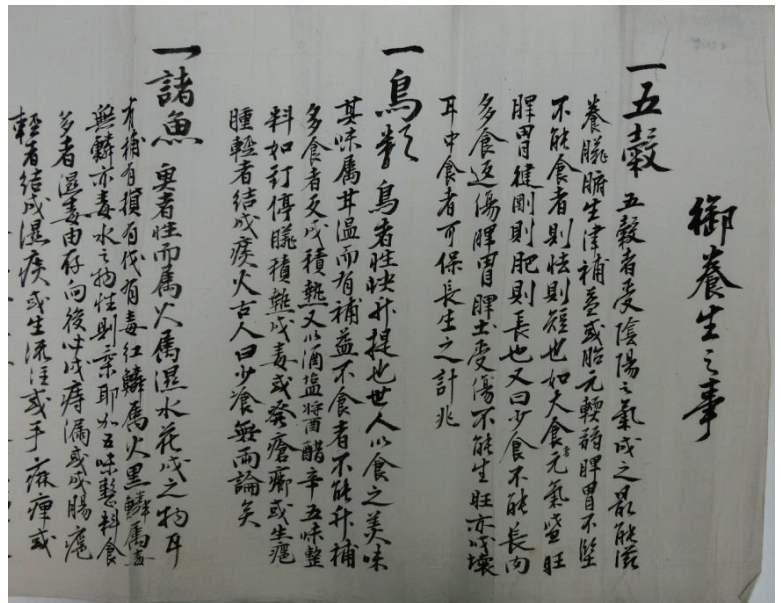 御養生之事
一五穀 五穀者受陰陽之氣成之最能滋
養臟腑生津補益或胎元輭弱脾胃不堅
不能食者則怯則短也如大食者元氣盛旺
脾胃健剛則肥則長也又曰少食不能長肉
多食返傷脾胃脾土受傷不能生旺亦成壞
耳中食者可保長生之計兆
一鳥類 鳥者性快升提也世人以食之美味
其味属甘温而有補益不食者不能升補
多食者反成積熱又以酒塩醤醋辛五味整
料如釘停臓積熱成毒或發瘡癤或生疱
腫輕者結成痰火古人曰少飡無両論矣
一諸魚 魚者性而属火属濕水花成之物耳
有補有損有伐有毒紅鱗属火黒鱗属毒
無鱗亦毒水之物性則寒耶加五味整料食
多者濕毒由存向後吐成痔漏或成腸疱
輕者結成濕痰或生流注或手麻痺或